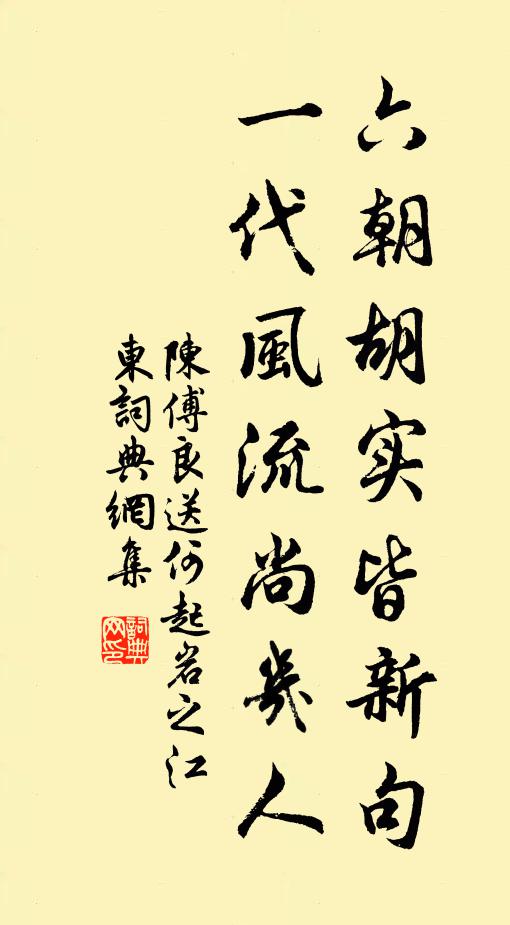 六朝胡实皆新句
一代風流尚幾人
陳傅良送何起岩之江
東詞典網集
詞典
网印